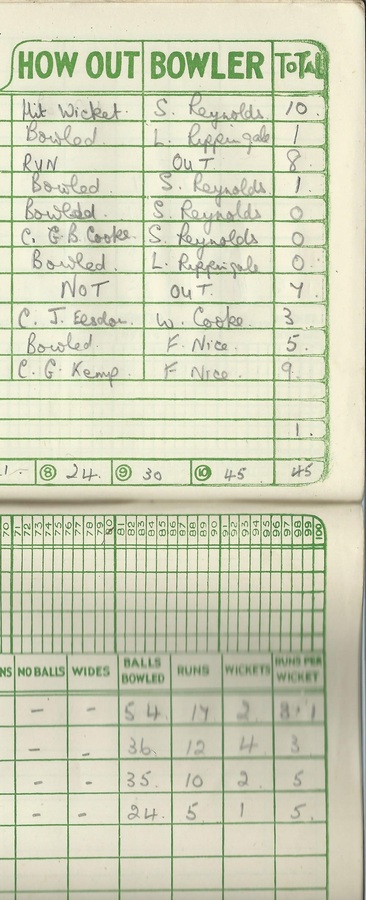 HOW OUT BOWLER TOTAL
Hit Wicket. S. Reynolds. 10.
Bowled L. Rippingale 1
RUN OUT 8.
Bowled. S. Reynolds. 1.
Bowled. S. Reynolds 0
C. G.B. Cooke. S. Reynolds 0
Bowled. L. Rippingale 0.
NOT OUT. 7.
C. J. Eesdon. W. Cooke. 3
Bowled. F. Nice. 5.
C. G. Kemp. F Nice. 9.
1.
1. 8 24. 9 30 10 45 45
70 71 72 73 74 75 76 77 78 79 80 81 82 83 84 85 86 87 88 89 90 91 92 93 94 95 96 97 98 99 100
NS NO BALLS WIDES BALLS BOWLED RUNS WICKETS RUNS PER WICKET
- - 54. 17 2
- - 36. 12 4 3
- - 35. 10 2 5
- - 24. 5 1 5.